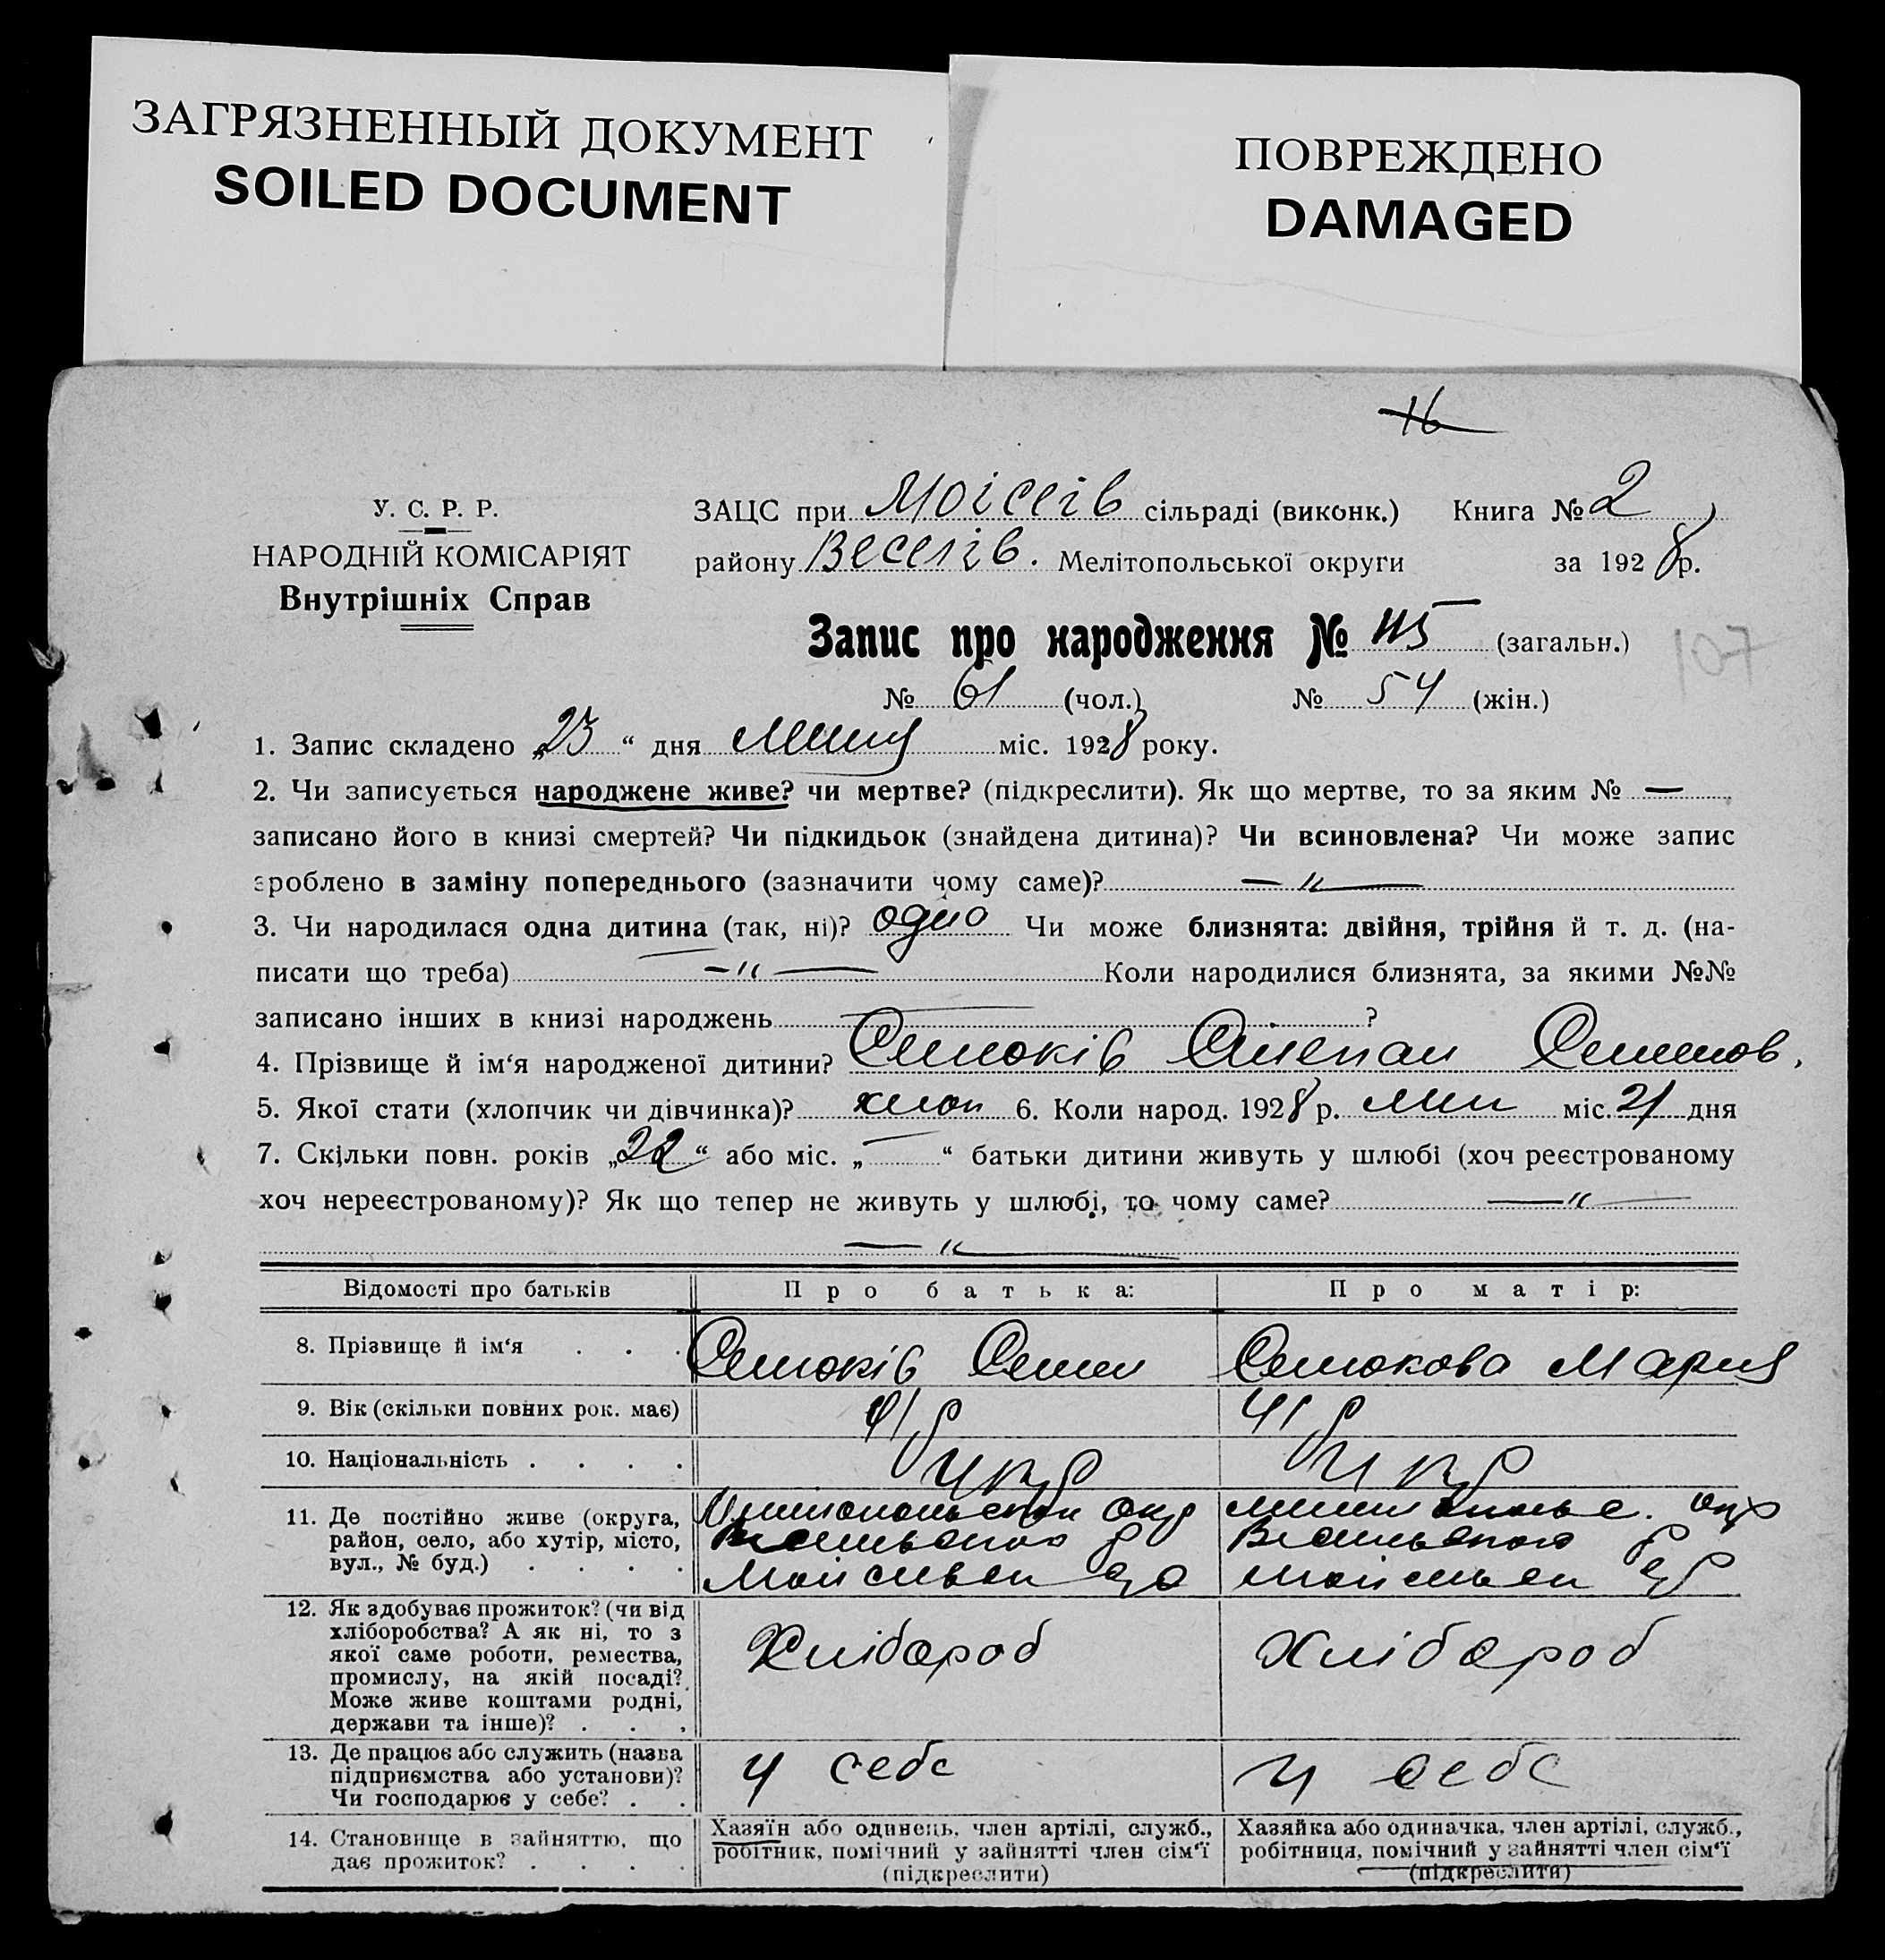 ЗАГРЯЗНЕННЫЙ ДОКУМЕНТ
SOILED DOCUMENT
ПОВРЕЖДЕНО
DAMAGED
16
У. С. Р. Р.
НАРОДНІЙ КОМІСАРІЯТ
Внутрішніх Справ
ЗАЦС при Моісеїв сільраді (виконк.) Книга № 2
району Веселів. Мелітопольської округи за 1928 р.
Запис про народження № 115 (загальн.)
107
№ 61 (чол.) № 54 (жін.)
1. Запис складено „23“ дня міс. 1928 року.
2. Чи записується народжене живе? чи мертве? (підкреслити). Як що мертве, то за яким № —
записано його в книзі смертей? Чи підкидьок (знайдена дитина)? Чи всиновлена? Чи може запис
зроблено в заміну попереднього (зазначити чому саме)? — „ —
3. Чи народилася одна дитина (так, ні)? одно Чи може близнята: двійня, трійня й т. д. (на-
писати що треба) — „ — Коли народилися близнята, за якими №№
записано інших в книзі народжень — ?
4. Прізвище й ім‘я народженої дитини? Семюків Степан Семенов.
5. Якої стати (хлопчик чи дівчинка)? хлоп 6. Коли народ. 1928 р. міс. 21 дня
7. Скільки повн. років „22“ або міс. „—“ батьки дитини живуть у шлюбі (хоч реєстрованому
хоч нереєстрованому)? Як що тепер не живуть у шлюбі, то чому саме? — „ —
— „ —
Відомості про батьків Про батька: Про матір:
8. Прізвище й ім‘я . . . Семюків Семен Семюкова Мария
9. Вік (скільки повних рок. має) 41 р 41 р
10. Національність . . . . Укр Укр
11. Де постійно живе (округа,
район, село, або хутір, місто,
вул., № буд.) . . . .
12. Як здобуває прожиток? (чи від
хліборобства? А як ні, то з
якої саме роботи, ремества,
промислу, на якій посаді?
Може живе коштами родні,
держави та інше)? . . .
Хлібороб Хлібороб
13. Де працює або служить (назва
підприємства або установи)?
Чи господарює у себе? . .
у себе у себе
14. Становище в зайняттю, що
дає прожиток? . . . .
Хазяїн або одинець, член артілі, служб.,
робітник, помічний у зайнятті член сім‘ї
(підкреслити)
Хазяйка або одиначка, член артілі, служб.,
робітниця, помічний у зайнятті член сім‘ї
(підкреслити)